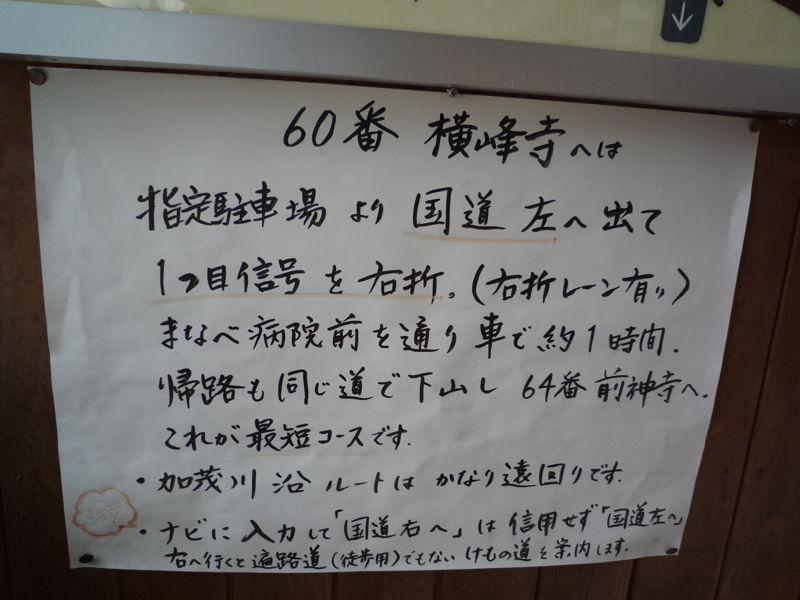 60番 横峰寺へは
指定駐車場 より 国道 左へ 出て
1つ目信号 を 右折。(右折レーン有り)
まなべ病院前を通り 車で 約1時間.
帰路も 同じ道で 下山し 64番 前神寺へ.
これが 最短コースです.
・加茂川 沿 ルートは かなり遠回りです.
・ナビに 入力して「国道右へ」は 信用せず「国道左へ」
右へ行くと 遍路道(徒歩用)でもない けもの道を案内します.